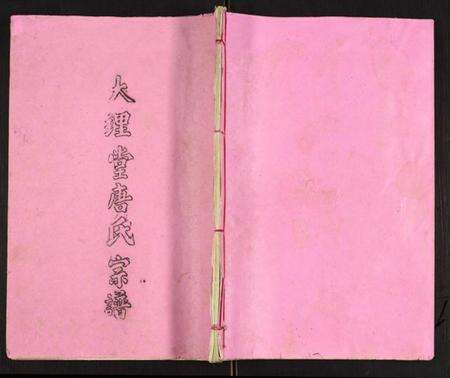 大理堂唐氏宗譜